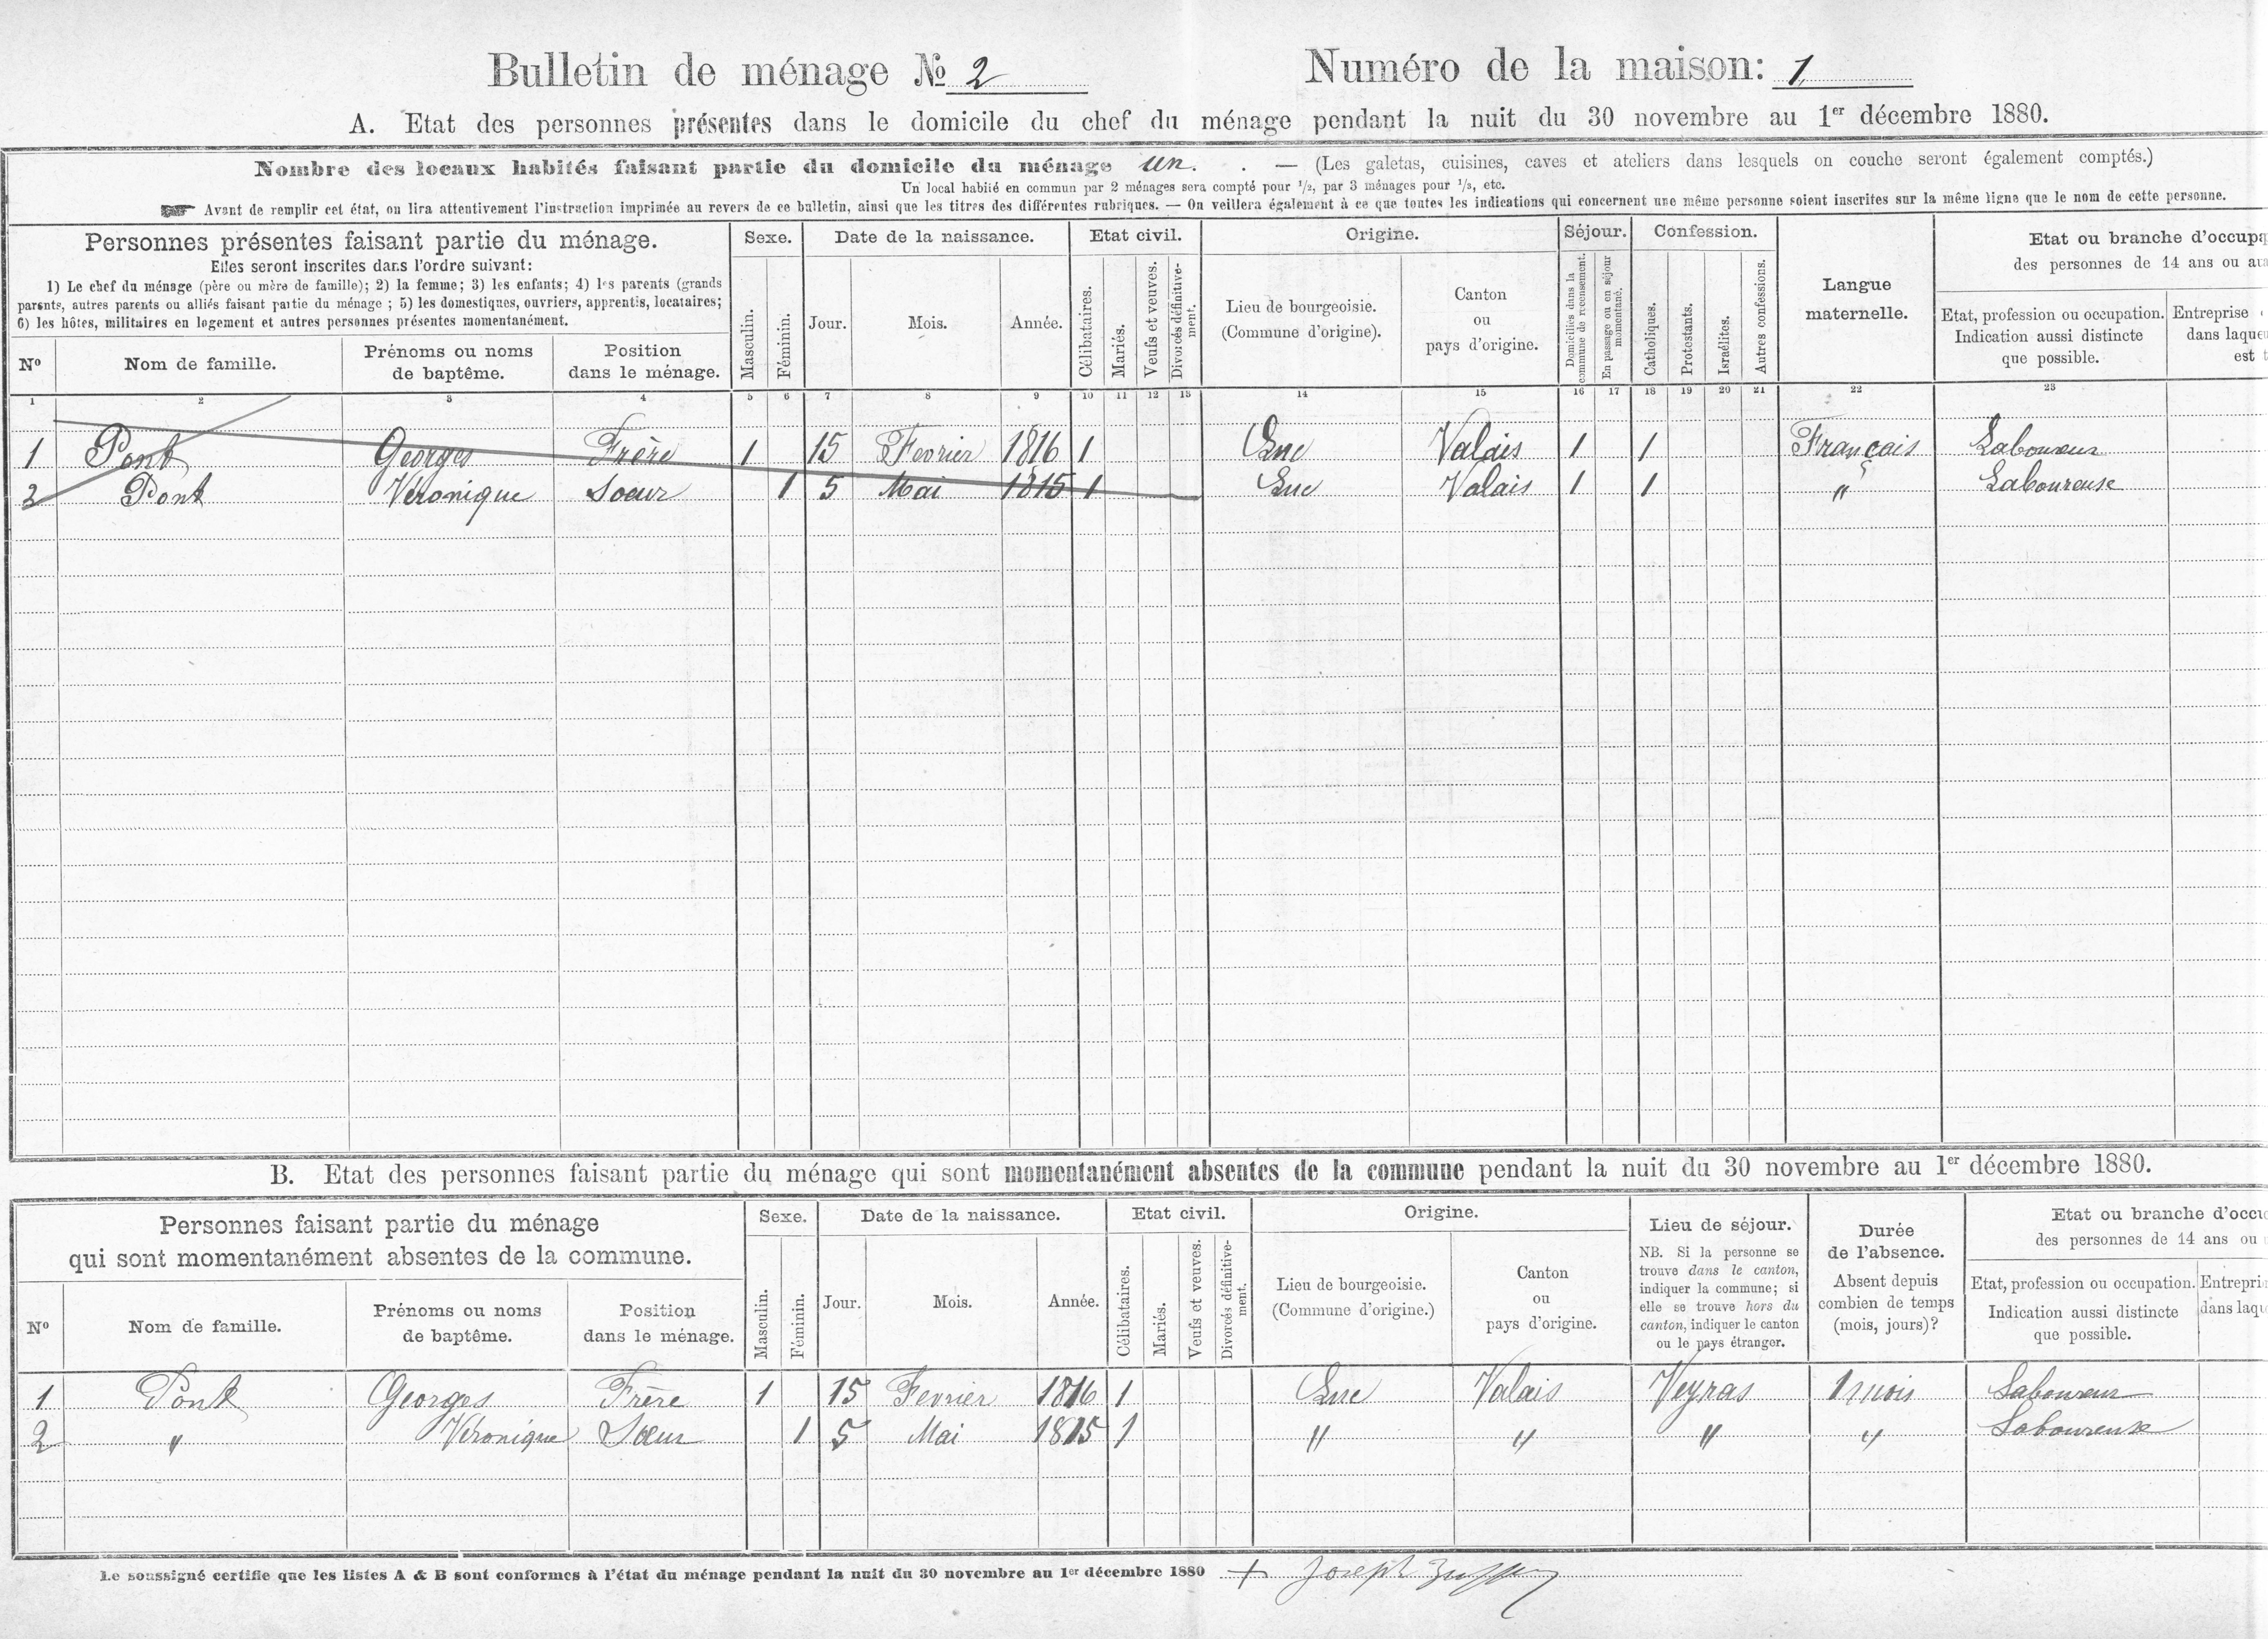 Bulletin de ménage № 2
Numéro de la maison: 1
A. Etat des personnes présentes dans le domicile du chef du ménage pendant la nuit du 30 novembre au 1er décembre 1880.
Nombre des locaux habités faisant partie du domicile du ménage un. . — (Les galetas, cuisines, caves et ateliers dans lesquels on couche seront également comptés.)
Un local habité en commun par 2 ménages sera compté pour 1/2, par 3 ménages pour 1/3, etc.
☞ Avant de remplir cet état, on lira attentivement l'instruction imprimée au revers de ce bulletin, ainsi que les titres des différentes rubriques. — On veillera également à ce que toutes les indications qui concernent une même personne soient inscrites sur la même ligne que le nom de cette personne.
Personnes présentes faisant partie du ménage.
Elles seront inscrites dans l'ordre suivant:
1) Le chef du ménage (père ou mère de famille); 2) la femme; 3) les enfants; 4) les parents (grands
parents, autres parents ou alliés faisant partie du ménage ; 5) les domestiques, ouvriers, apprentis, locataires;
6) les hôtes, militaires en logement et autres personnes présentes momentanément.
Nº
Nom de famille.
Prénoms ou noms
de baptême.
Position
dans le ménage.
Sexe.
Masculin.
Féminin.
Date de la naissance.
Jour.
Mois.
Année.
Etat civil.
Célibataires.
Mariés.
Veufs et veuves.
Divorcés définitive-
ment.
Origine.
Lieu de bourgeoisie.
(Commune d'origine).
Canton
ou
pays d'origine.
Séjour.
Domiciliés dans la
commune de recensement.
En passage ou en séjour
momentané.
Confession.
Catholiques.
Protestants.
Israélites.
Autres confessions.
Langue
maternelle.
Etat ou branche d'occupa
des personnes de 14 ans ou au
Etat, profession ou occupation.
Indication aussi distincte
que possible.
Entreprise
dans laque
est
1 2 3 4 5 6 7 8 9 10 11 12 13 14 15 16 17 18 19 20 21 22 23
1 Pont Georges Frère 1 15 Fevrier 1816 1 Luc Valais 1 1 Français Laboureur
2 Pont Véronique Soeur 1 5 Mai 1815 1 Luc Valais 1 1 " Laboureuse
B. Etat des personnes faisant partie du ménage qui sont momentanément absentes de la commune pendant la nuit du 30 novembre au 1er décembre 1880.
Personnes faisant partie du ménage
qui sont momentanément absentes de la commune.
Nº
Nom de famille.
Prénoms ou noms
de baptême.
Position
dans le ménage.
Sexe.
Masculin.
Féminin.
Date de la naissance.
Jour.
Mois.
Année.
Etat civil.
Célibataires.
Mariés.
Veufs et veuves.
Divorcés définitive-
ment.
Origine.
Lieu de bourgeoisie.
(Commune d'origine.)
Canton
ou
pays d'origine.
Lieu de séjour.
NB. Si la personne se
trouve dans le canton,
indiquer la commune; si
elle se trouve hors du
canton, indiquer le canton
ou le pays étranger.
Durée
de l'absence.
Absent depuis
combien de temps
(mois, jours)?
Etat ou branche d'occu
des personnes de 14 ans ou
Etat, profession ou occupation.
Indication aussi distincte
que possible.
Entrepri
dans laqu
1 Pont Georges Frère 1 15 Fevrier 1816 1 Luc Valais Veyras 1 mois Laboureur
2 " Véronique Sœur 1 5 Mai 1815 1 " " " " Laboureuse
Le soussigné certifie que les listes A & B sont conformes à l'état du ménage pendant la nuit du 30 novembre au 1er décembre 1880 + Joseph